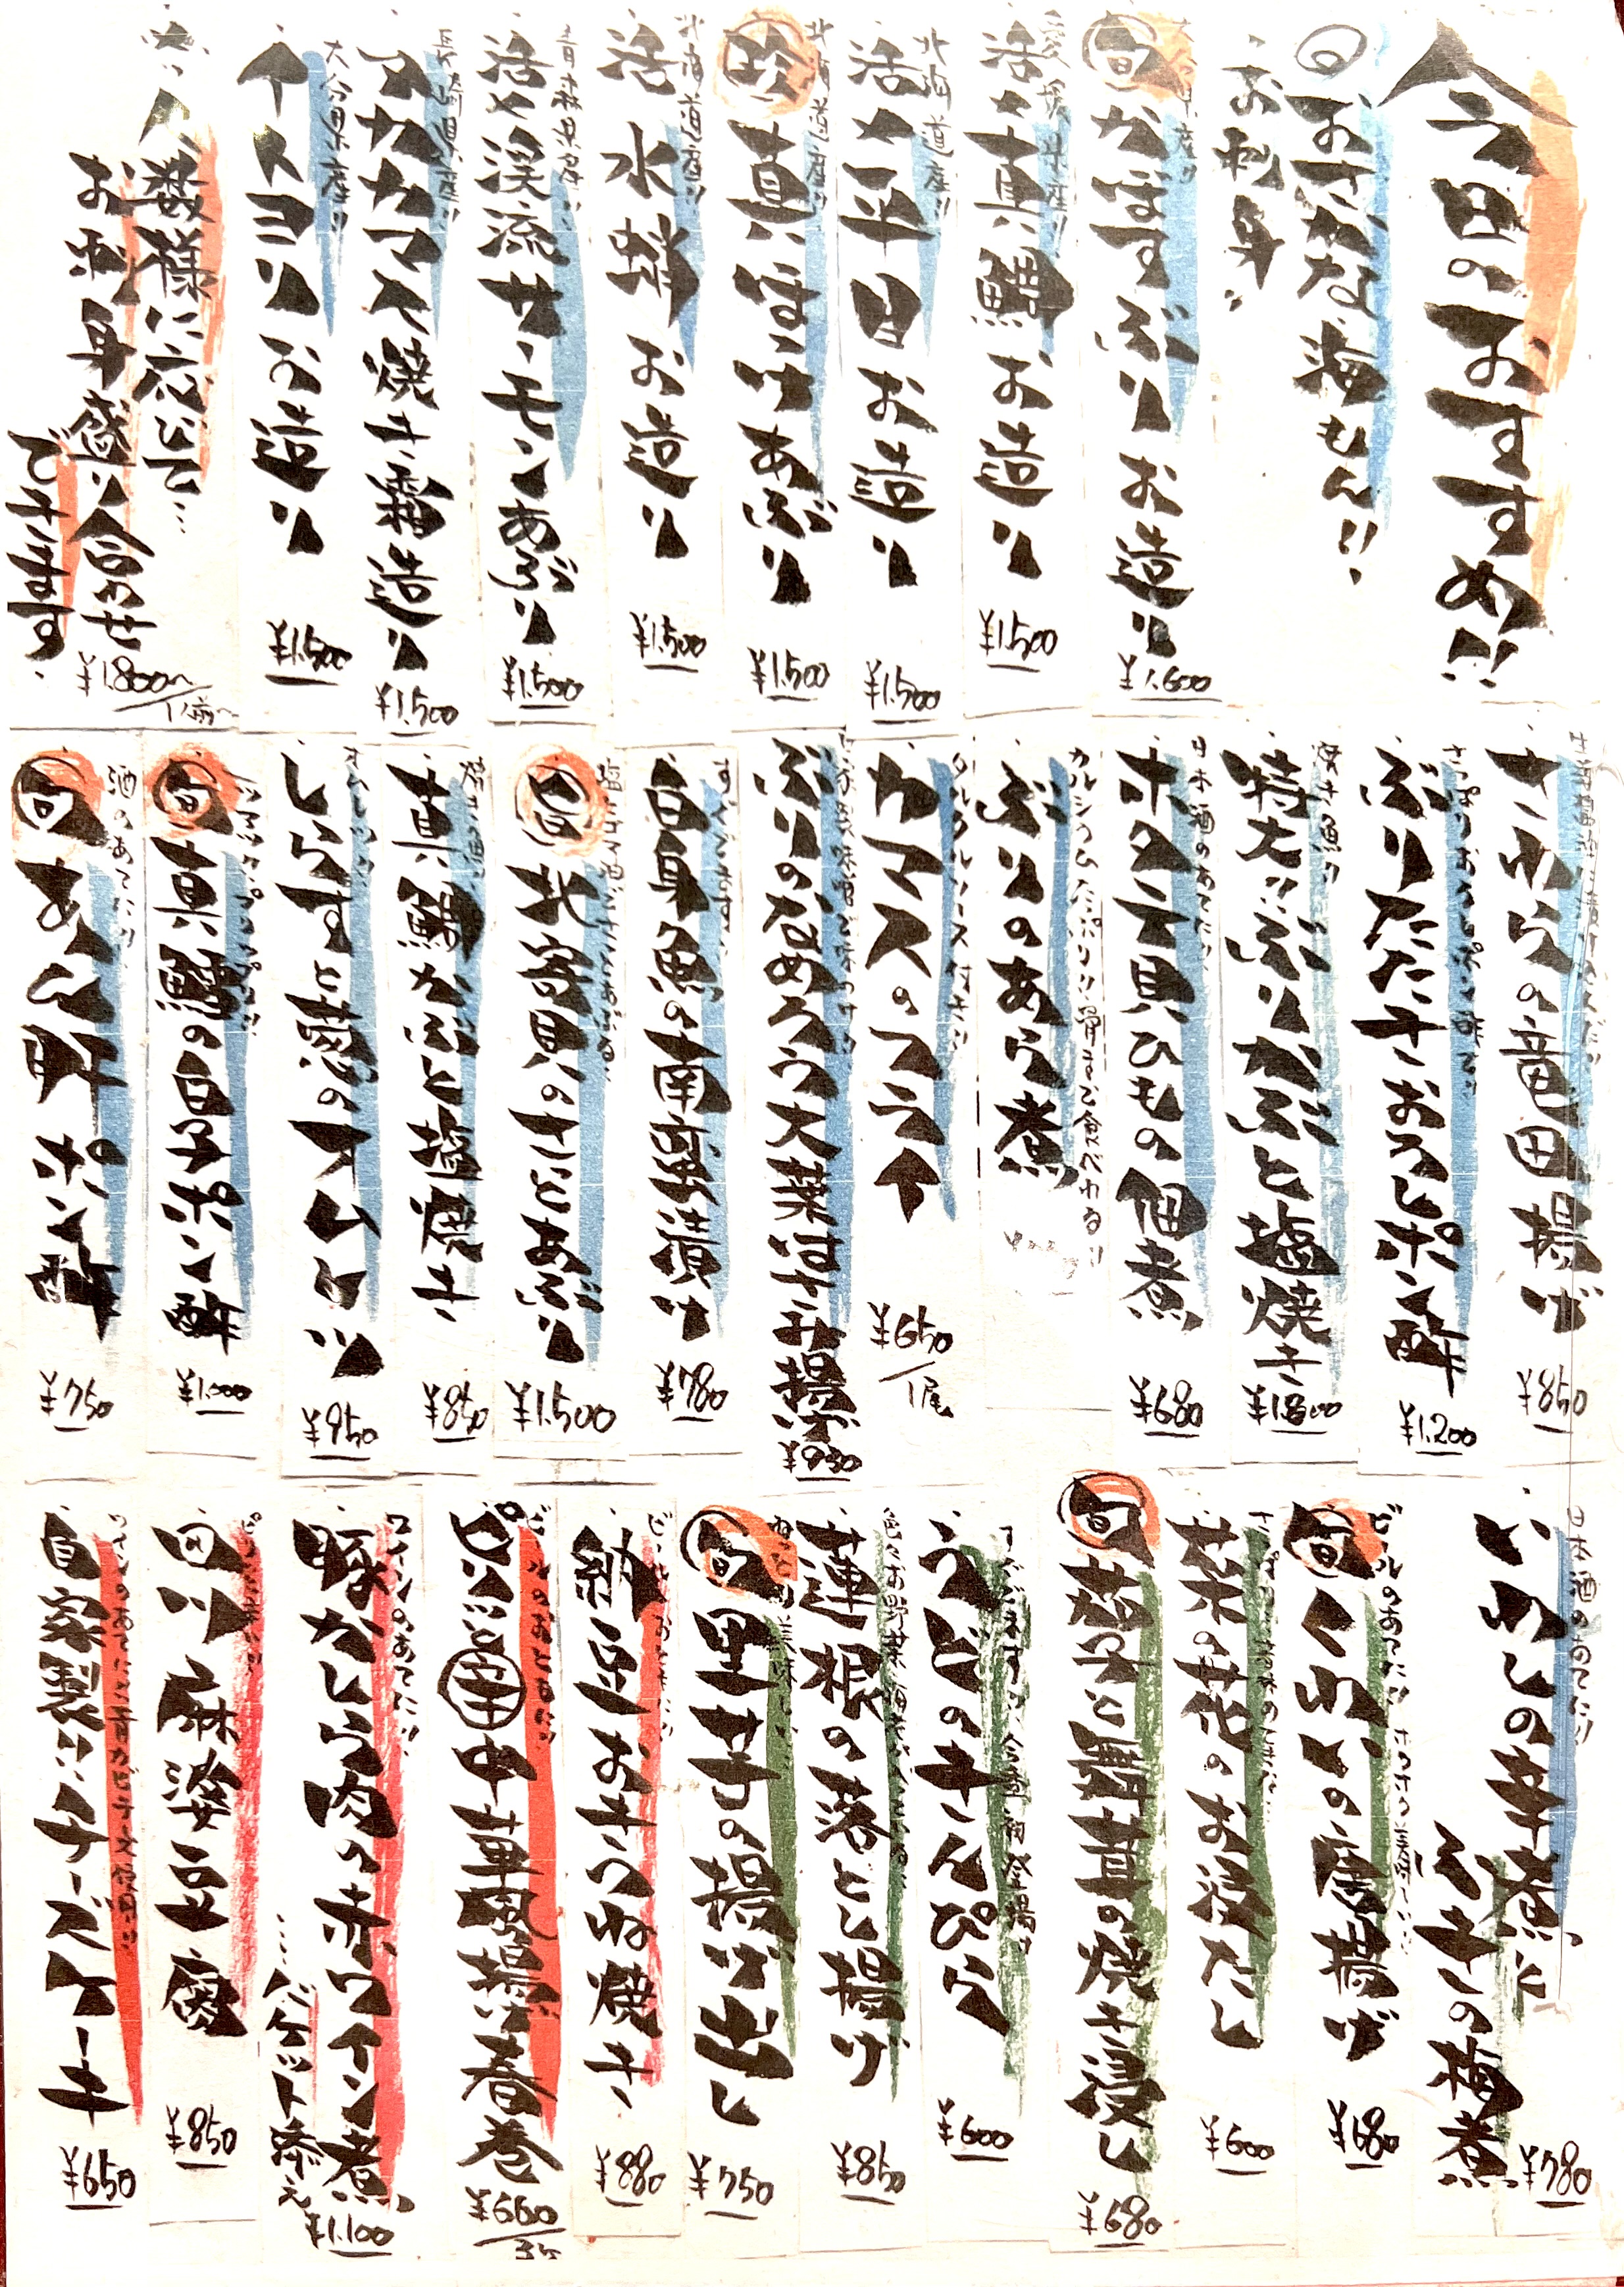 今日のおすすめ!!
旬おさかな海もん!!
お刺身
旬かぼすぶりお造り
¥1.600
愛媛県産!!
活〆真鯛お造り
¥1.500
北海道産!!
活〆平目お造り
¥1.500
北海道産!!
珍真ほっけあぶり
¥1.500
北海道産!!
活水蛸お造り
¥1.500
青森県産!!
活〆渓流サーモンあぶり
¥1.500
長崎県産!!
アカカマス焼き霜造り
¥1.500
大分県産!!
イトヨリお造り
¥1.500
人数様に応じて…
お刺身盛り合わせ
できます
¥1.800〜/1人前〜
さわらの竜田揚げ
¥850
さっぱりおろしポン酢で!!
ぶりたたきおろしポン酢
¥1.200
焼き魚!!
特大!!ぶりかぶと塩焼き
¥1.800
日本酒のあてに!!
ホタテ貝ひもの佃煮
¥680
カルシウムたっぷり!!骨まで食べれる!!
ぶりのあら煮
タルタルソース付き!!
カマスのフライ
¥650/1尾
ぶりのなめろう大葉はさみ揚げ
¥930
白身魚の南蛮漬け
¥780
旨北寄貝のさっとあぶり
¥1.500
焼き魚!!
真鯛かぶと塩焼き
¥850
しらすと葱のオムレツ
¥950
旬真鱈の白子ポン酢
¥1.000
酒のあてに!!
旬あん肝ポン酢
¥750
日本酒のあてに!!
いわしの辛煮と
ふきの梅煮
¥780
ビールのあてに!!ホクホク美味しい!!
旬くわいの唐揚げ
¥680
菜の花のお浸たし
¥600
旬茄子と舞茸の焼き浸し
¥680
うどのきんぴら
¥600
蓮根の落とし揚げ
¥850
旬里芋の揚げ出し
¥750
納豆おきつね焼き
¥880
ビールのおともに!!
ピリッと辛中華風揚げ春巻
¥660/3ヶ
ワインのあてに!!
豚かしら肉の赤ワイン煮
…バケット添え
¥1.100
四川麻婆豆腐
¥850
ワインのあてに!!青カビチーズ使用!!
自家製!!チーズケーキ
¥650